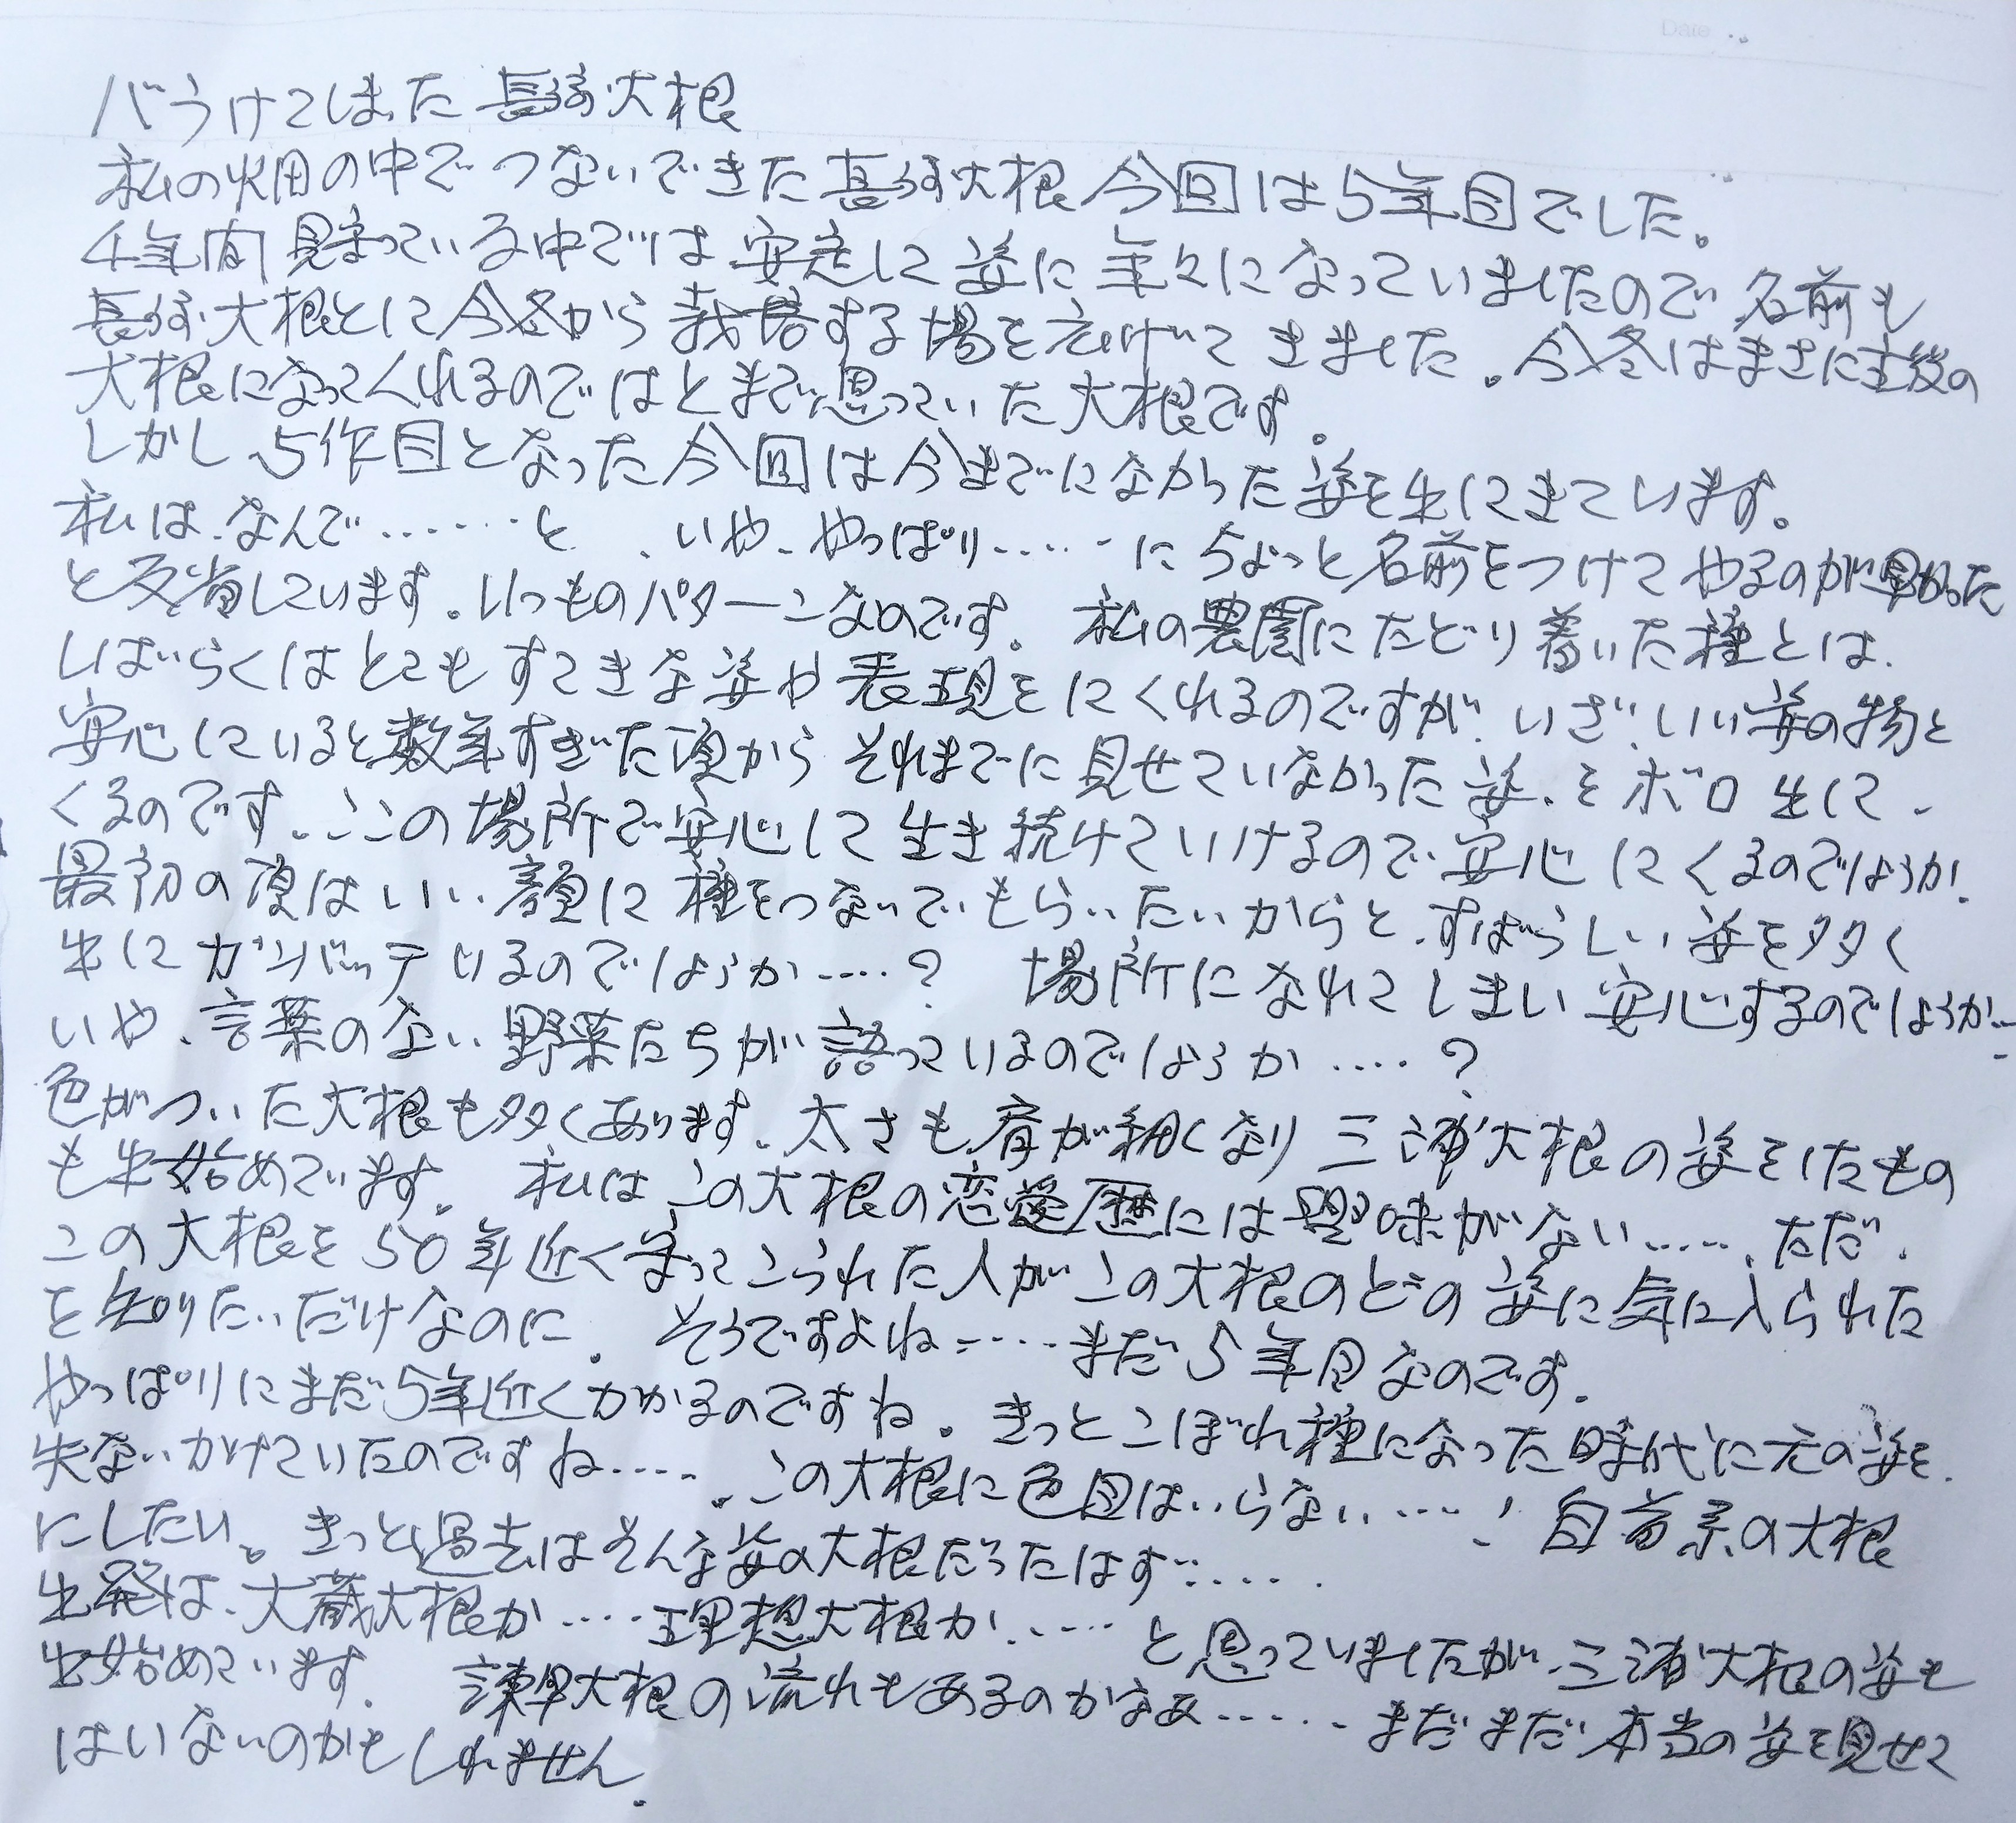 バラけてしまった 長崎大根
私の畑の中で つないできた 長崎大根 今回は5年目でした。
4年間 見まもっている中では 安定して 姿に 年々になっていましたので 名前も
長崎大根として今冬から 栽培する場を広げて きました。今冬はまさに主役の
大根になってくれるのではとまで思っていた大根です。
しかし、5作目となった今回は今までになかった姿を出してきています。
私は、なんで……と 、いや、やっぱり……に ちょっと名前をつけて やるのが早かった
と反省しています。いつものパターンなのです。 私の農園にたどり着いた種とは、
しばらくはとてもすてきな姿や表現をしてくれるのですが、いざ、いい姿の物と
安心していると数年すぎた頃から それまでに見せていなかった姿、をボロ出して、
くるのです。ここの場所で安心して生き続けていけるので、安心してくるのでしょうか、
最初の頃はいい、顔して種をつないでもらいたいからと、すばらしい姿を多く
出して ガンバッテいるのでしょうか……? 場所になれてしまい安心するのでしょうか…
いや、言葉のない野菜たちが語っているのでしょうか……?
色がついた大根も多くあります。太さも肩が細くなり 三浦大根の姿をしたもの
も出始めています。 私はこの大根の恋愛歴には興味がない……、ただ、
この大根を50年近く守ってこられた人がこの大根のどの姿に気に入られた
を知りたいだけなのに。 そうですよね……まだ5年目なのです。
やっぱりにまだ5年近くかかるのですね。きっとこぼれ種になった時代に元の姿を、
失ないかけていたのですね……、この大根に色目はいらない……! 自首系の大根
にしたい。きっと過去はそんな姿の大根だったはず……。
出発は、大蔵大根か……理想大根か……と思っていましたが、三浦大根の姿も
出始めています。 諫早大根の流れもあるのかなあ……まだまだ本当の姿を見せて
はいないのかもしれません。